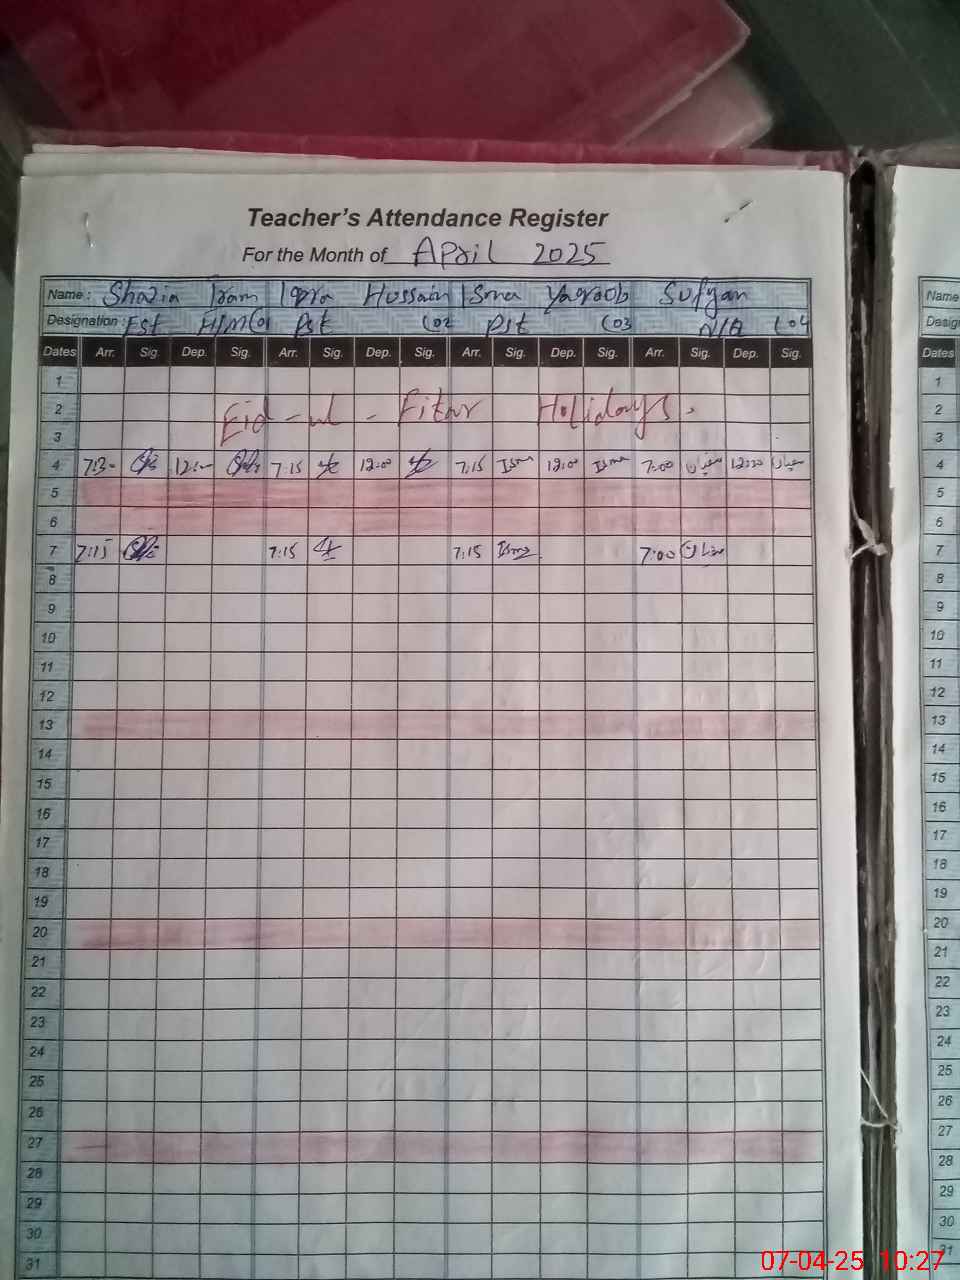 Teacher's Attendance Register
For the Month of April 2025
Name : Shazia Iram Iqra Hussain Isma Yaqoob Sufyan
Designation : Est H/M (01 Pst (02 Pst (03 N/A (04
Dates Arr. Sig. Dep. Sig. Arr. Sig. Dep. Sig. Arr. Sig. Dep. Sig. Arr. Sig. Dep. Sig.
1
2 Eid-ul-Fitar Holidays.
3
4 7:30 12:00 7:15 12:00 7:15 Isma 12:00 Isma 7:00 سفیان 12:00 سفیان
5
6
7 7:15 7:15 7:15 Isma 7:00 سفیان
8
9
10
11
12
13
14
15
16
17
18
19
20
21
22
23
24
25
26
27
28
29
30
31
Name
Desig
Dates
1
2
3
4
5
6
7
8
9
10
11
12
13
14
15
16
17
18
19
20
21
22
23
24
25
26
27
28
29
30
31
07-04-25 10:27